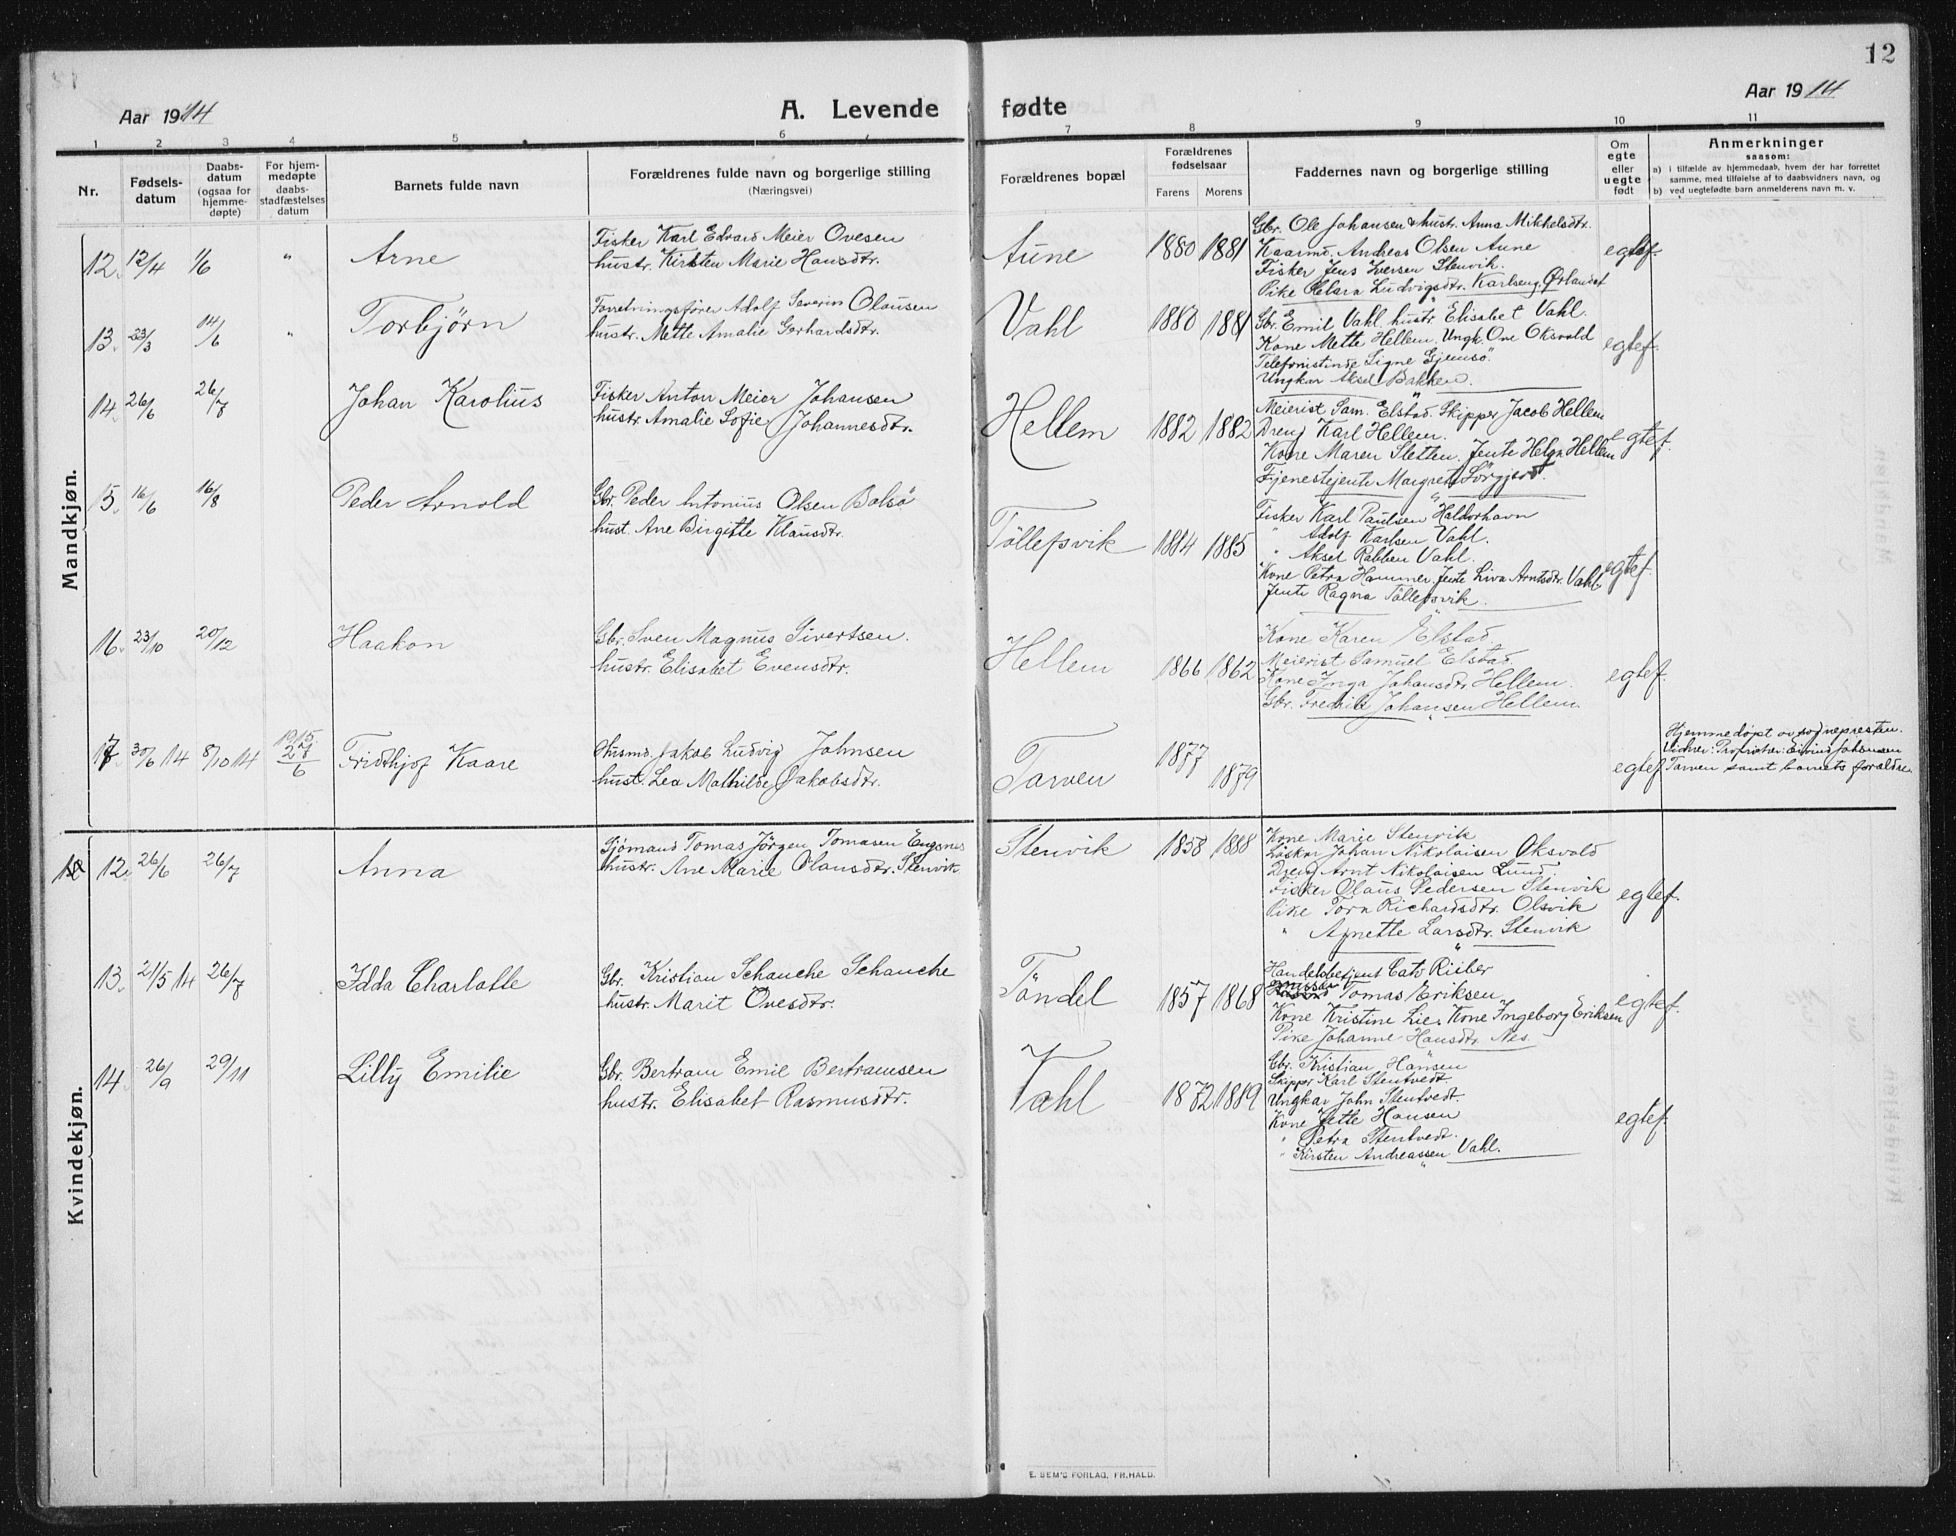 12
Aar 1914
A. Levende
fødte
Aar 1914
1 2 3 4 5 6 7 8 9 10 11
Nr.
Fødsels-
datum
Daabs-
datum
(ogsaa for
hjemme-
døpte)
For hjem-
medøpte
daabs-
stadfæstelses
datum
Barnets fulde navn
Forældrenes fulde navn og borgerlige stilling
(Næringsvei)
Forældrenes bopæl
Forældrenes
fødselsaar
Farens Morens
Faddernes navn og borgerlige stilling
Om
egte
eller
uegte
født
Anmerkninger
saasom:
a) i tilfælde av hjemmedaab, hvem der har forrettet
samme, med tilføielse af to daabsvidners navn, og
b) ved uegtefødte barn anmelderens navn m. v.
Mandkjøn.
12. 12/4 1/6 " Arne
Fisker Karl Edvard Meier Ovesen
hustr. Kirsten Marie Hansdtr.
Aune 1880 1881
Gbr. Ole Johansen & hustr. Anna Mikkelsdtr.
Kaarmd. Andreas Olsen Aune
Fisker Jens Iversen Stenvik.
Pike Klara Ludvigsdtr. Karlseng Ørlandet
egtef.
13. 23/3 14/6 " Torbjørn
Forretningsfører Adolf Severin Olausen
hustr. Mette Amalie Gerhardsdtr.
Vahl 1880 1881
Gbr. Emil Vahl. hustr. Elisabet Vahl.
Kone Mette Hellem. Ungk. Ove Oksvold
Telefonistinde Signe Gjemsö.
Ungkar Aksel Bakken.
egtef.
14. 26/6 26/7 Johan Karolius
Fisker Anton Meier Johansen
hustr. Amalie Sofie Johannesdtr.
Hellem 1882 1882
Meierist Sam. Elstad. Skipper Jacob Hellem
Dreng Karl Hellem.
Kone Maren Sletten. Jente Helga Hellem
Tjenestejente Margrete
egtef.
15. 16/6 16/8 Peder Arnold
Gbr. Peder Antonius Olsen Balsö
hust. Ane Birgitte Klausdtr.
Töllefsvik 1884 1885
Fisker Karl Paulsen Haldorhavn
" Adolf Karlsen Vahl.
" Aksel Rabben Vahl.
Kone Petra Hammer, Jente Liva Arntsdtr. Vahl.
Jente Ragna Töllefsvik.
egtef.
16. 23/10 20/12 Haakon
Gbr. Sven Magnus Sivertsen.
hustr. Elisabet Evensdtr.
Hellem 1866 1862
Kone Karen Elstad.
Meierist Samuel Elstad.
Kone Inga Johansdtr. Hellem.
Gbr. Fredrik Johansen Hellem.
egtef.
17. 30/6 14 8/10 14 1915 27/6 Fridthjof Kaare
Husmd. Jakob Ludvig Johnsen
hust. Lea Mathilde Jakobsdtr.
Tarven 1877 1879
egtef.
Hjemmedöpt av sognepresten.
Vidner: Proprietær Eivind Johansen
Tarven samt barnets forældre.
Kvindekjøn.
12. 26/6 26/7 Anna
Sjömand Tomas Jörgen Tomasen Engsnes
hustr. Ane Marie Olausdtr. Stenvik
Stenvik 1858 1888
Kone Marie Stenvik
Löskar Johan Nikolaisen Oksvold
Dreng Arnt Nikolaisen Lund.
Fisker Olaus Pedersen Stenvik
Pike Tora Richardsdtr. Olsvik
" Agnette Larsdtr. Stenvik
egtef.
13. 21/5 14 26/7 Idda Charlotte
Gbr. Kristian Schanche Schanche
hustr. Marit Ovesdtr.
Töndel 1857 1868
Handelsbetjent Cato Risber
Tomas Eriksen
Kone Kristine Lie, Kone Ingeborg Eriksen
Pike Johanne Hansdtr. Nes.
egtef.
14. 26/9 29/11 Lilly Emilie
Gbr. Bertram Emil Bertramsen
hustr. Elisabet Rasmusdtr.
Vahl 1872 1889
Gbr. Kristian Hansen
Skippr. Karl Stentvedt.
Ungkar John Stentvedt.
Kone Jette Hansen
" Petra Stentvedt.
" Kirsten Andreassen Vahl.
egtef.
E. SEM'S FORLAG, FR.HALD.